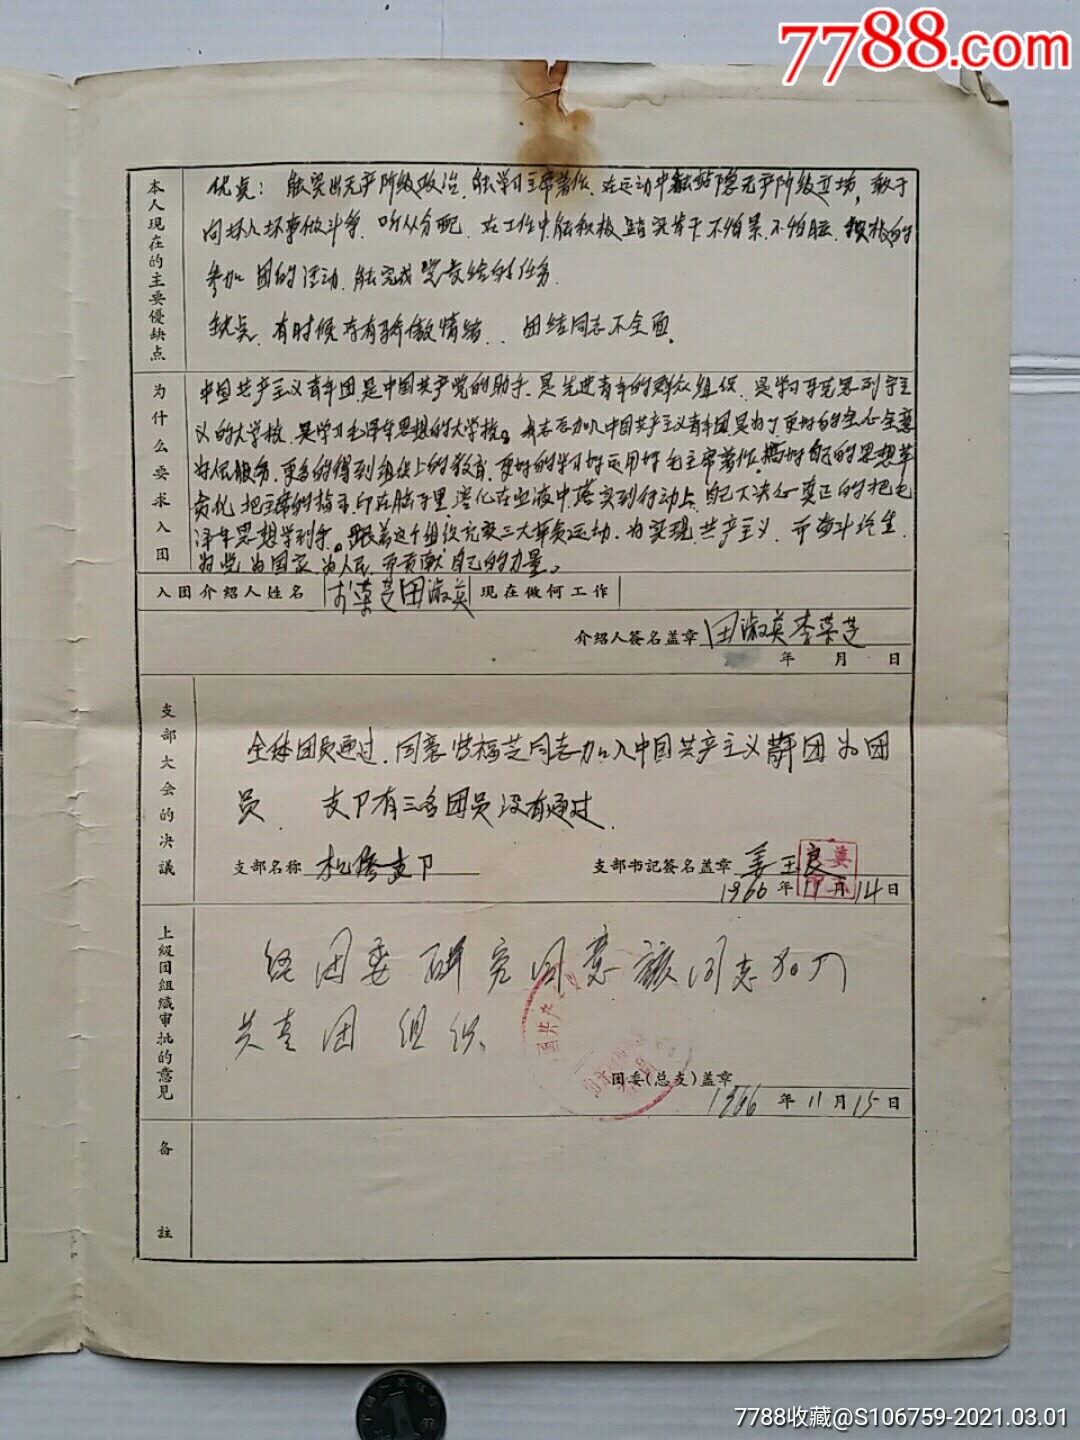 7788.com
本人现在的主要優缺点
优点：能突出无产阶级政治，能学习主席著作，在运动中能站稳无产阶级立场，敢于
向坏人坏事做斗争，听从分配，在工作中能积极 肯干不怕累，不怕脏，积极的
参加团的活动，能完成党交给的任务
缺点，有时候存有骄傲情绪，团结同志不全面。
为什么要求入团
中国共产主义青年团是中国共产党的助手，是先进青年的群众组织，是学习马克思列宁主
义的大学校，是学习毛泽东思想的大学校。我志愿加入中国共产主义青年团是为了更好的全心全意
为人民服务，更多的得到组织上的教育，更好的学习好运用好毛主席著作，搞好自己的思想革
命化，把主席的指示，印在脑子里，溶化在血液中，落实到行动上，自己下决心真正的把毛
泽东思想学到手。跟着这个组织 三大革命运动，为实现共产主义，而奋斗终生，
为党为国家，为人民，而贡献自己的力量。
入团介紹人姓名 李荣芝田淑英 现在做何工作
介紹人簽名盖章 田淑英李荣芝
年 月 日
支部大会的决議
全体团员通过，同意 福芝同志加入中国共产主义青年团为团
员， 支卩有三名团员没有通过，
支部名称 机修支卩 支部书記簽名盖章 姜玉良
1966年11月14日
上級团組織审批的意見
经团委研究同意该同志加入
共青团组织、
团委(总支)盖章
1966年11月15日
备註
7788收藏@S106759-2021.03.01